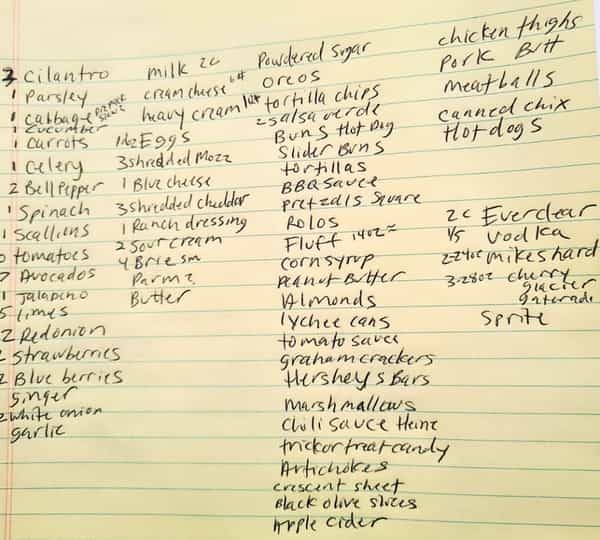 3 Cilantro
1 Parsley
1 Cabbage
1 Cucumber
1 Carrots
1 Celery
2 Bell Pepper
1 Spinach
1 Scallions
tomatoes
7 Avocados
1 Jalapeno
5 limes
2 Red onion
2 strawberries
2 Blue berries
ginger
2 white onion
garlic
milk 2c
cream cheese
heavy cream
Eggs
3 shredded Mozz
1 Blue cheese
3 shredded cheddar
1 Ranch dressing
2 Sour cream
4 Brie sm
Parm
Butter
Powdered Sugar
Oreos
tortilla chips
2 salsa verde
Buns Hot Dog
Slider Buns
tortillas
BBQ sauce
Pretzals Square
Rolos
Fluff 14oz
Corn syrup
Peanut Butter
Almonds
lychee cans
tomato sauce
graham crackers
Hersheys Bars
Marshmallows
Chili Sauce Heinz
trick or treat candy
Artichokes
crescent sheet
Black olive slices
Apple Cider
chicken thighs
Pork Butt
meatballs
canned chix
Hot dogs
2c Everclear
1/5 Vodka
2-24oz mikes hard
3-28oz cherry
glacier
gatorade
Sprite